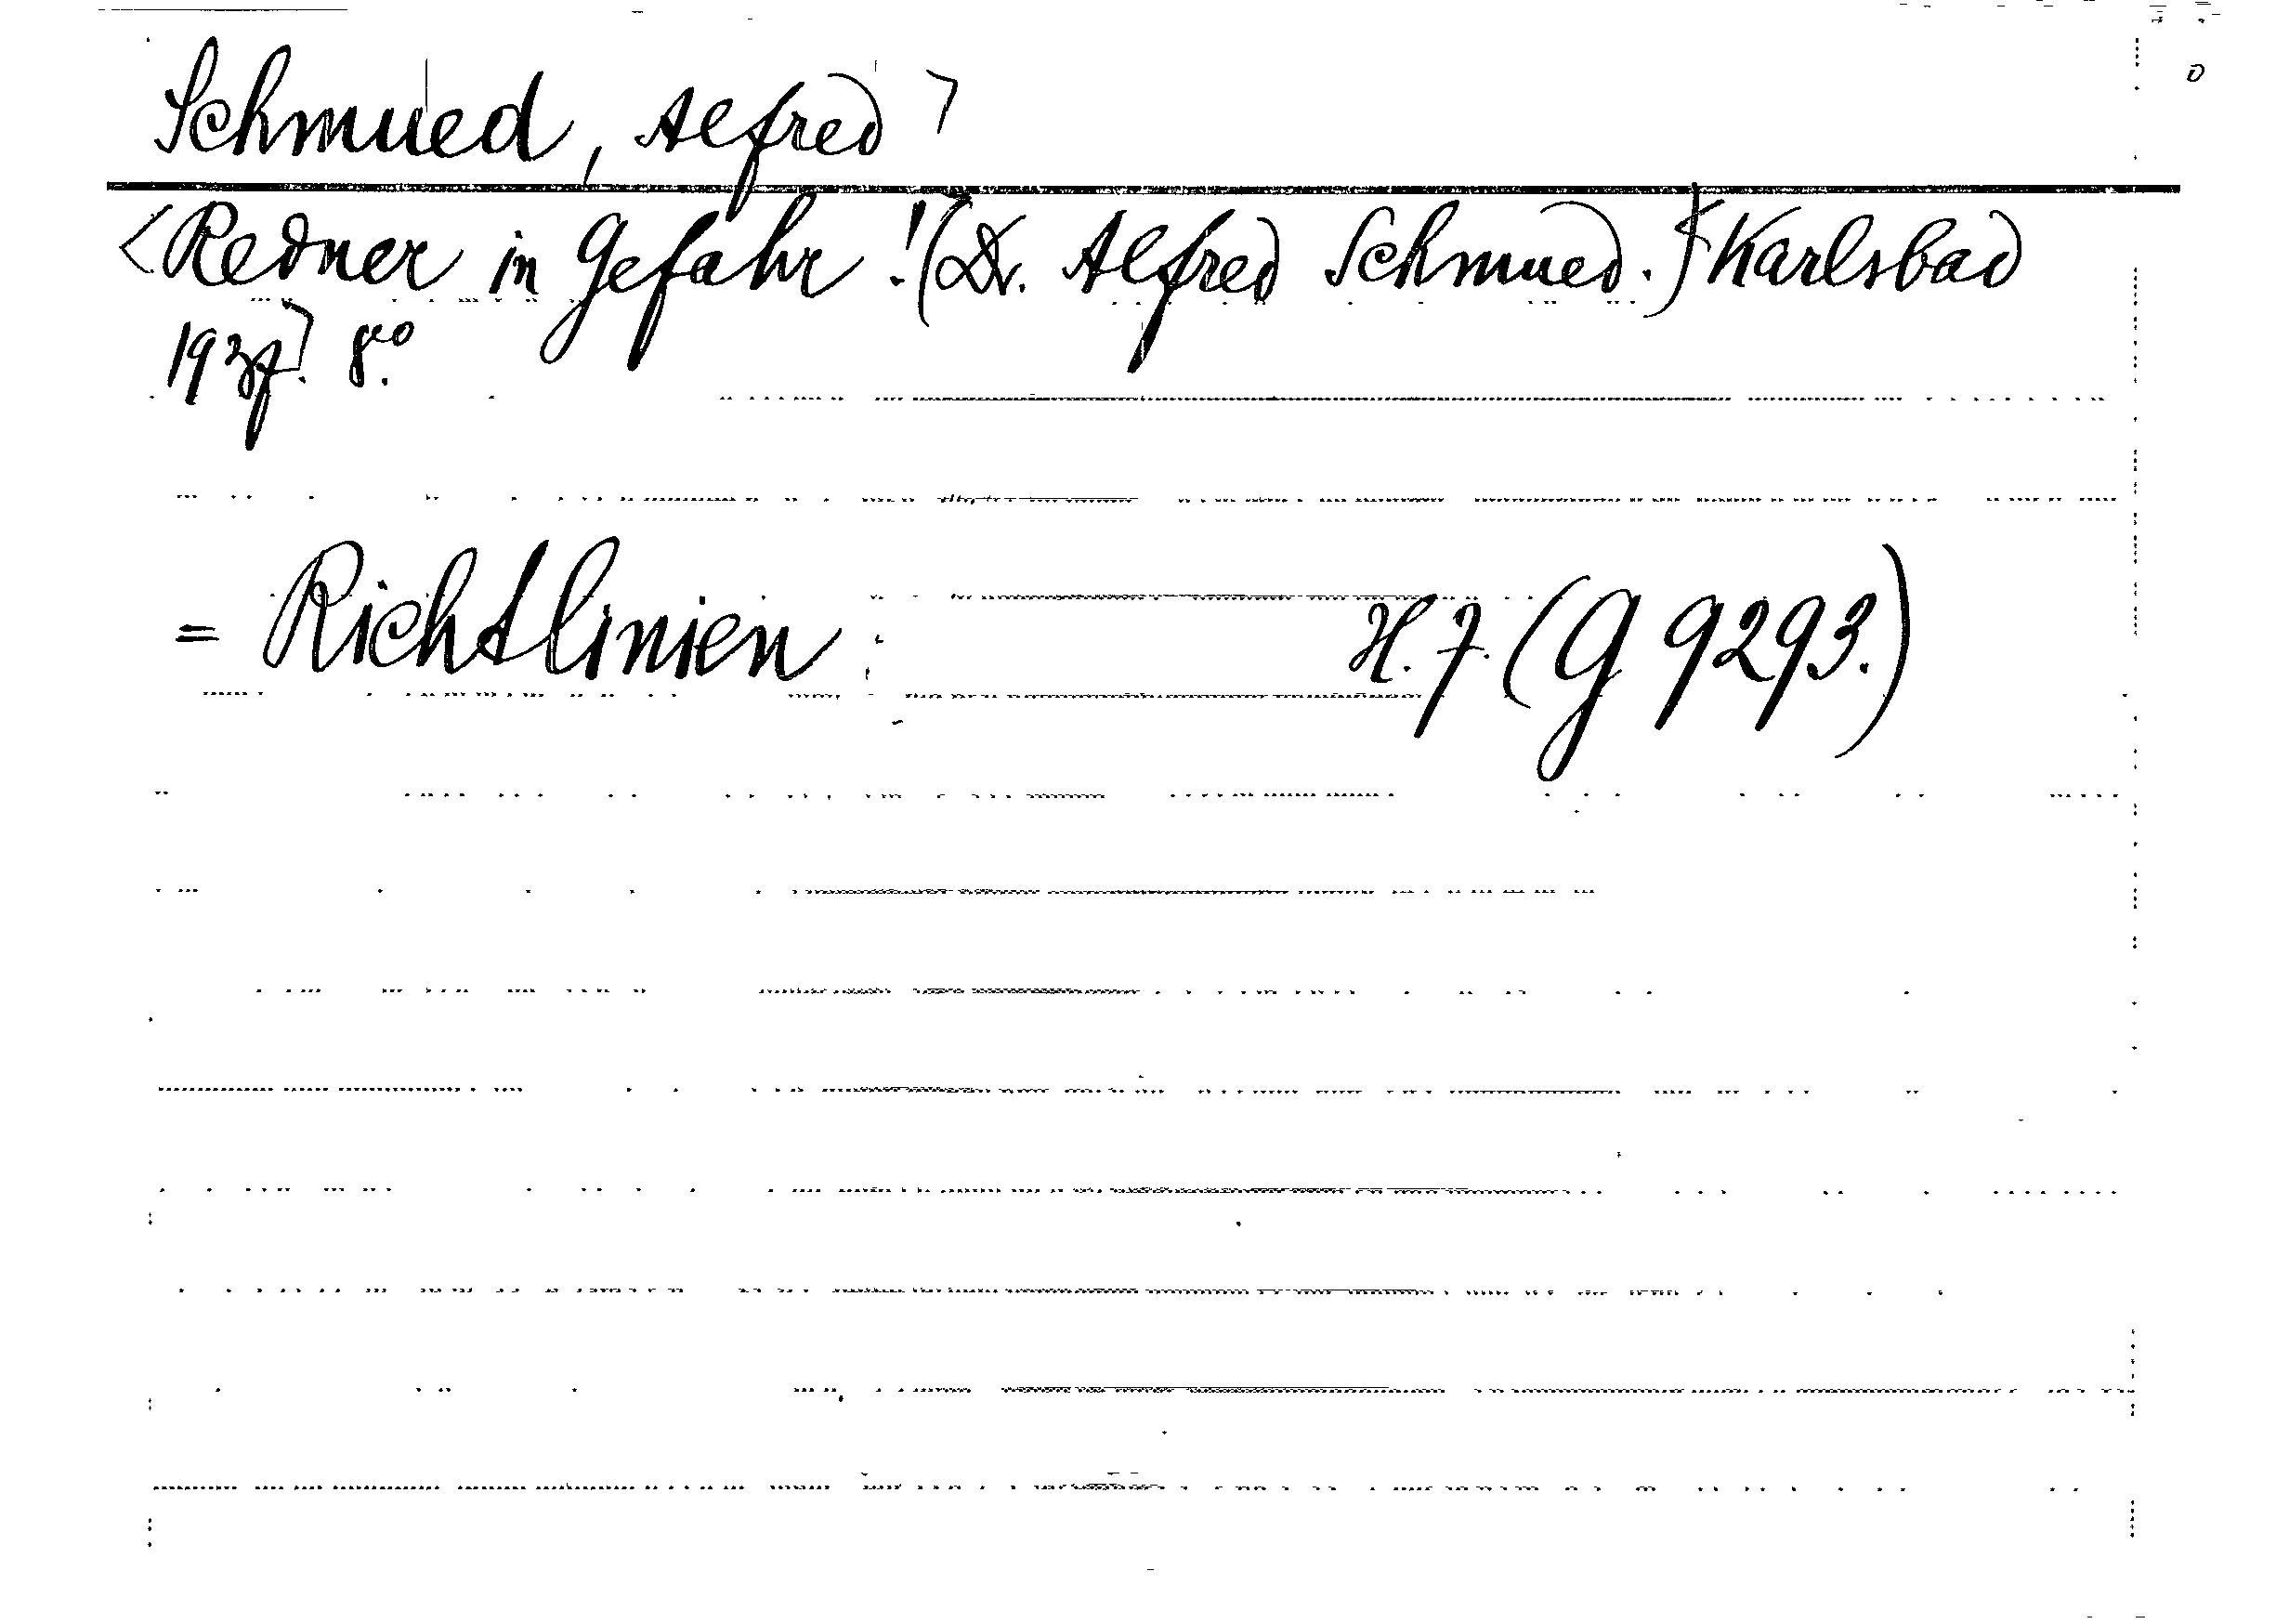 Schmued, Alfred ⌉
<Redner in Gefahr! (Dr. Alfred Schmued.) Karlsbad
1937⌉. 8vo.
= Richtlinien H. 7. (G 9293.)